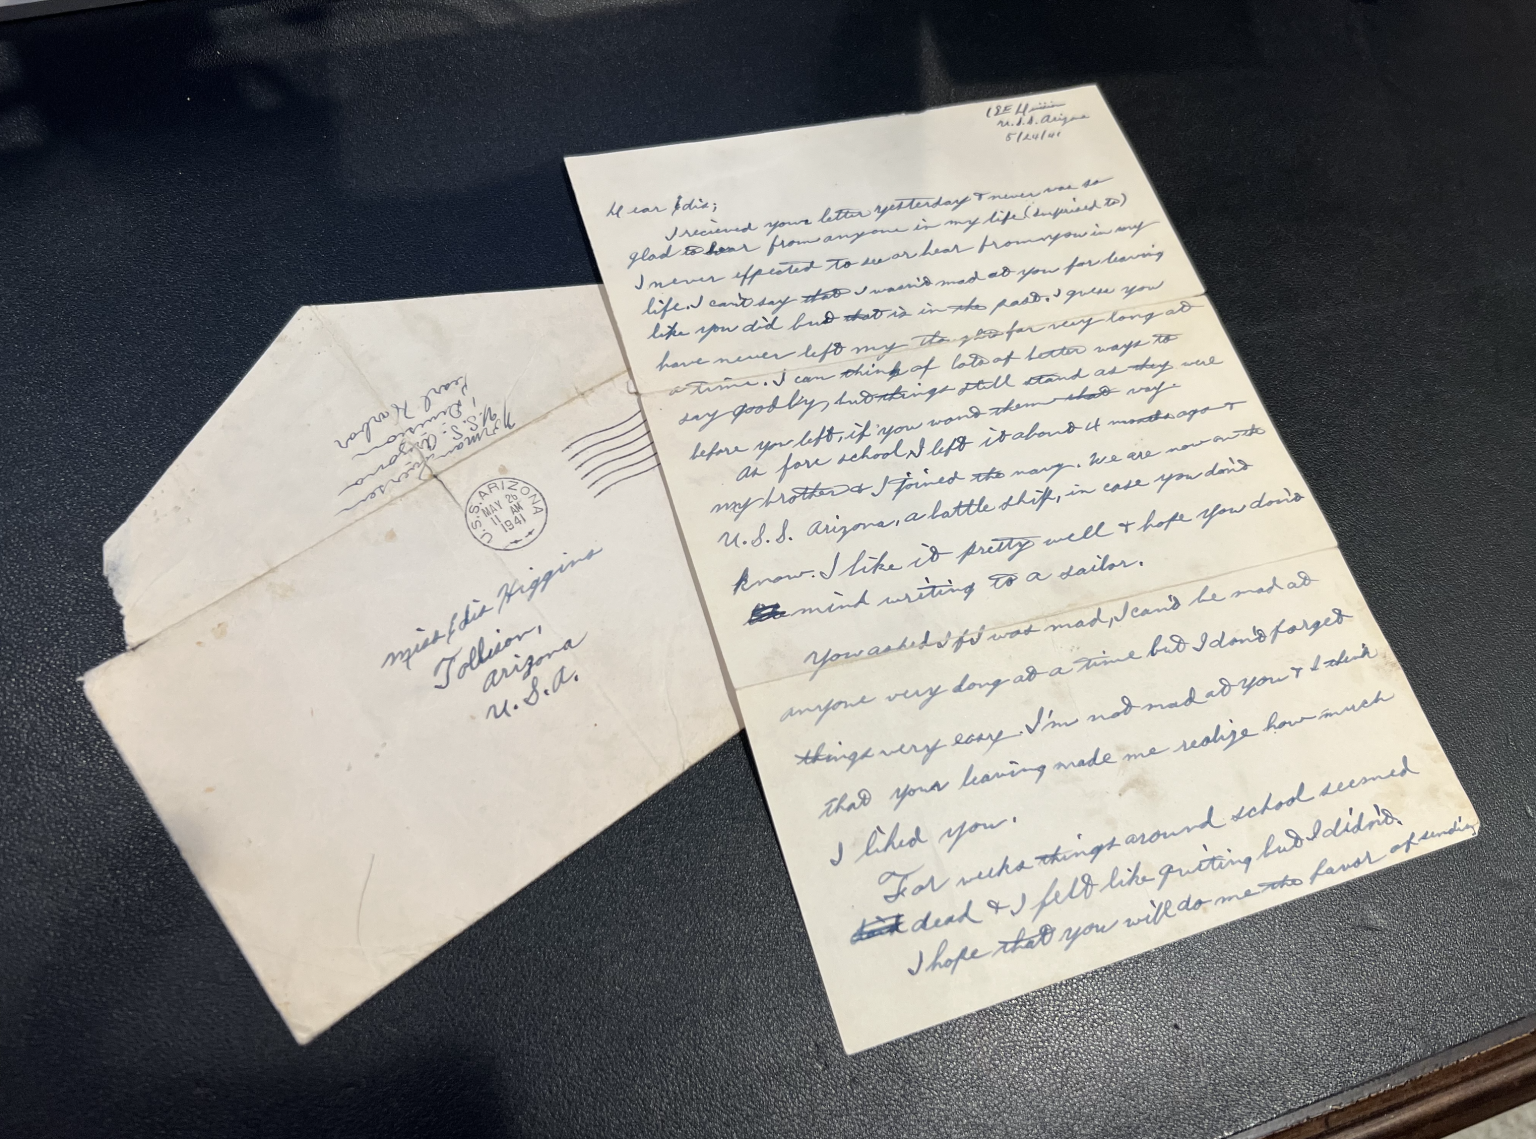 U.S.S. Arizona
5/24/41
Dear Edis;
I recieved your letter yesterday & never was so
glad to hear from anyone in my life (surprised to)
I never expected to see or hear from you in my
life. I can't say that I wasn't mad at you for leaving
like you did but that is in the past. I guess you
have never left my for very long at
a time. I can think of lots of better ways to
say goodby, but things still stand as they were
before you left, if you want them that way.
As fore school, I left it about 4 months ago &
my brother & I joined the navy. We are now on the
U.S.S. Arizona, a battle ship, in case you don't
know. I like it pretty well & hope you don't
mind writing to a sailor.
You asked if I was mad, I can't be mad at
anyone very long at a time but I don't forget
things very easy. I'm not mad at you & I think
that your leaving made me realize how much
I liked you.
For weeks things around school seemed
dead & I felt like quiting but I didn't.
I hope that you will do me the favor of sending
Norman
U.S.S. Arizona
1 Division
Pearl Harbor
U.S.S. ARIZONA
MAY 26
11 AM
1941
Miss Edis Higgins
Tollison,
Arizona
U.S.A.